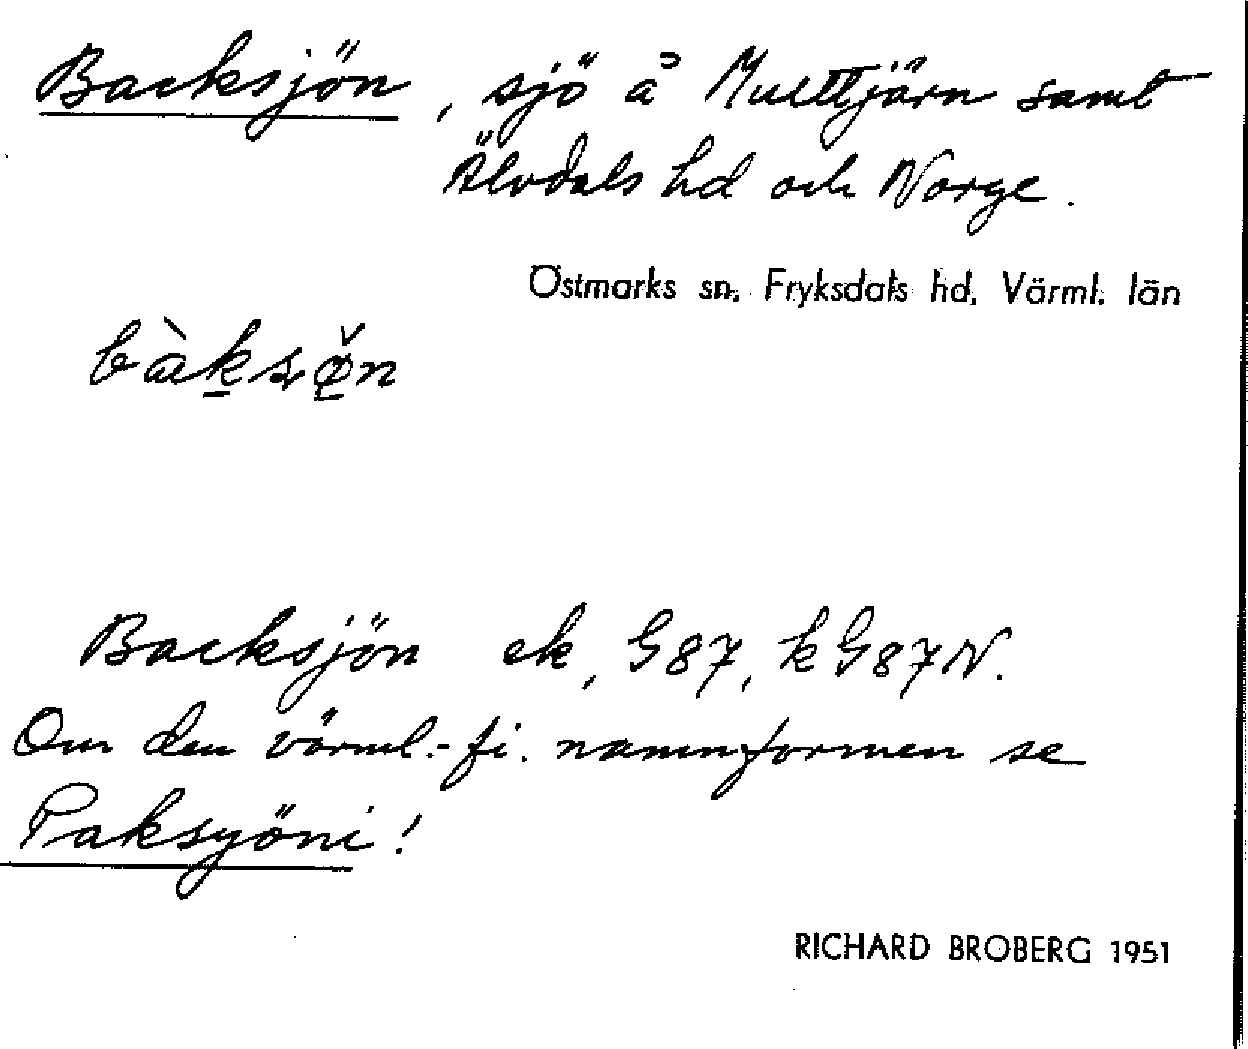 Backsjön, sjö å Multtjärn samt
Älvdals hd och Norge.
Östmarks sn, Fryksdals hd, Värml. län
bàksø̌n
Backsjön ek, G87, kG87N.
Om den värml.-fi. namnformen se
Paksyöni!
RICHARD BROBERG 1951